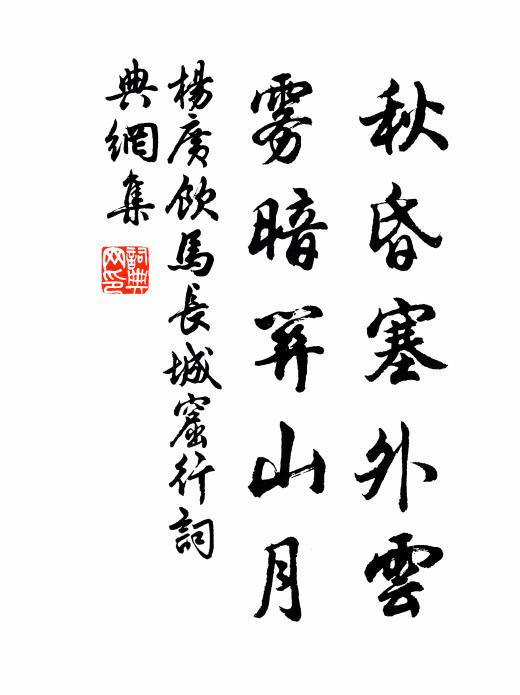 秋昏塞外雲
雾暗關山月
楊廣飲馬長城窟行詞
典網集
詞典
网印